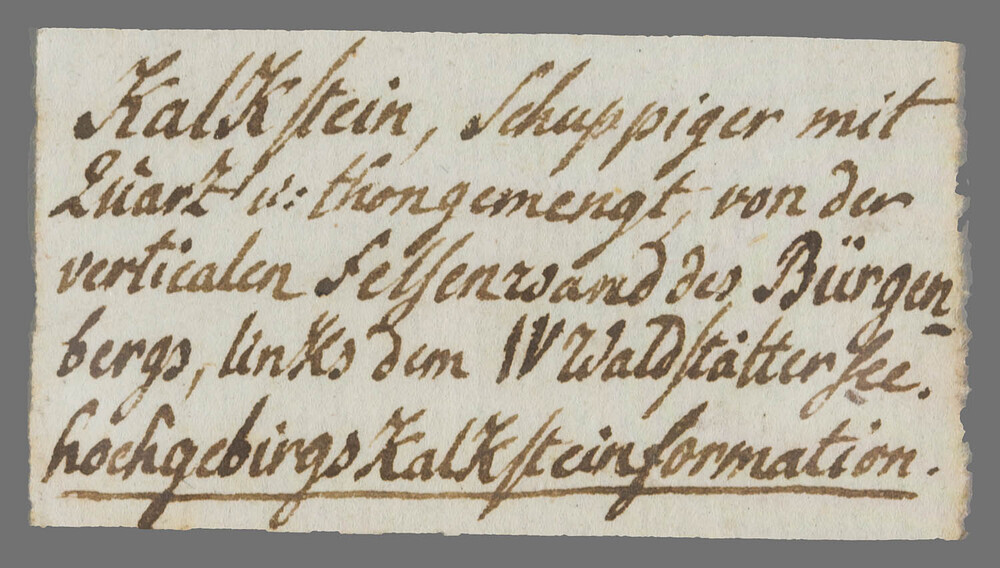 KalKstein, Schuppiger mit
Quarz u: thongemengt, von der
verticalen Felsenwand des Bürgen-
bergs, linKs dem IV Waldstätter See.
hochgebirgsKalKsteinformation.